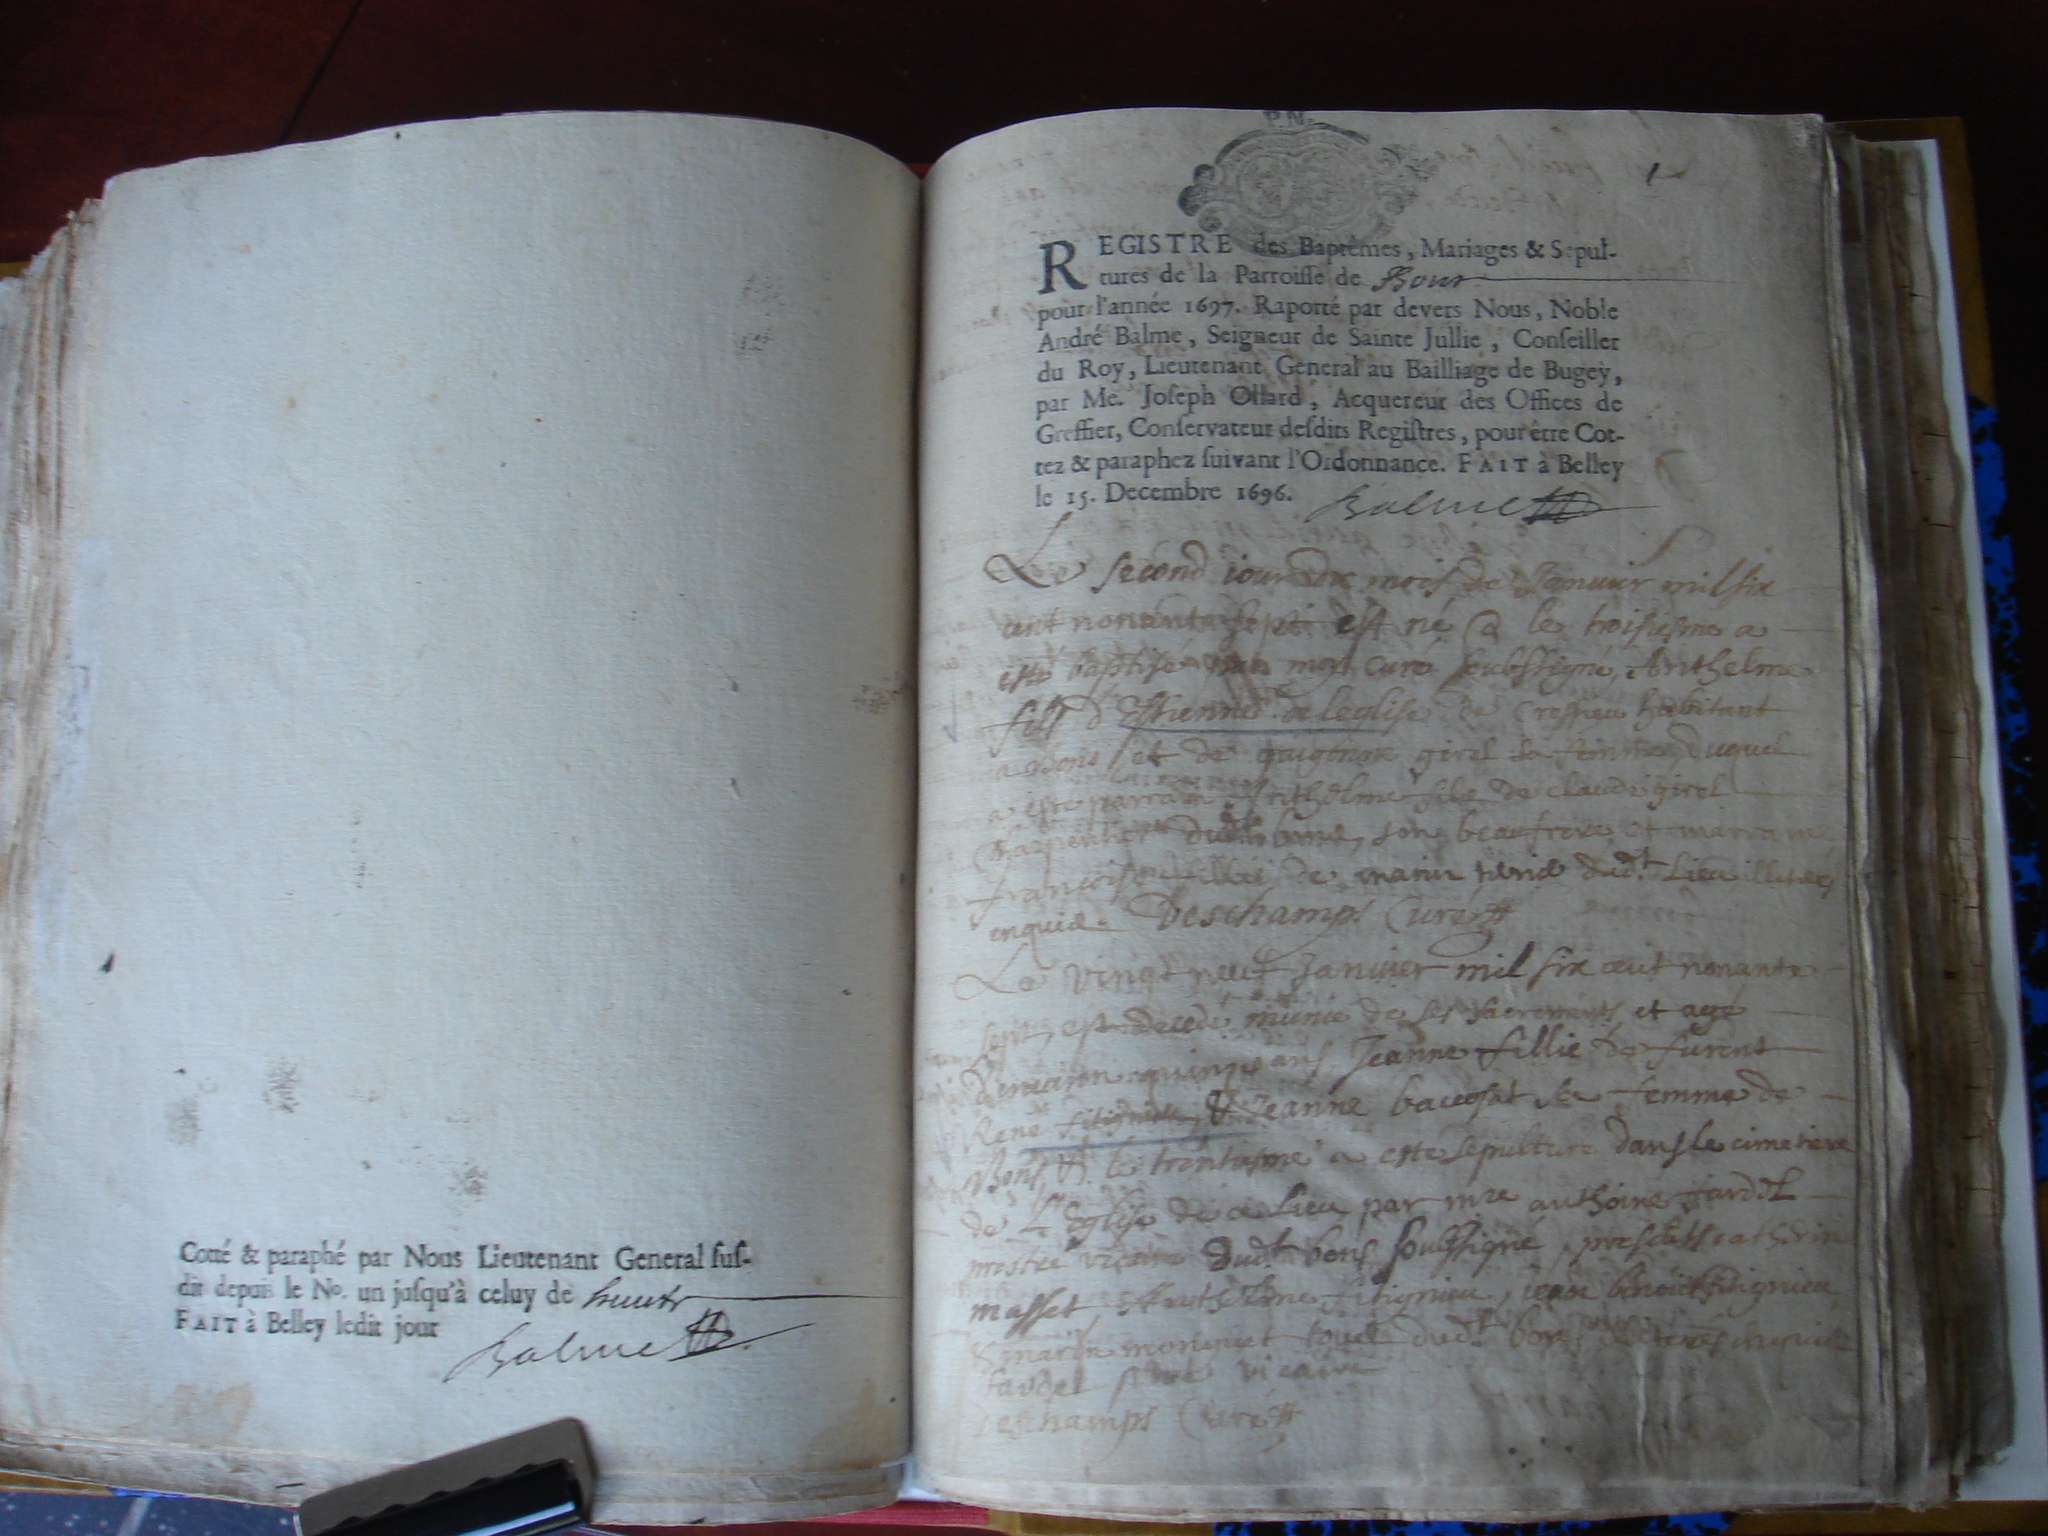 Cotté & paraphé par Nous Lieutenant General suſ-
dit depuis le No. un juſqu'à celuy de
FAIT à Belley ledit jour
Balme
P.N.
1
REGISTRE des Baptêmes, Mariages & Sepul-
tures de la Parroiſſe de Bons
pour l'année 1697. Raporté par devers Nous, Noble
André Balme, Seigneur de Sainte Jullie, Conſeiller
du Roy, Lieutenant General au Bailliage de Bugey,
par Me. Joſeph Ollard, Acquereur des Offices de
Greffier, Conſervateur deſdits Regiſtres, pour être Cot-
tez & paraphez ſuivant l'Ordonnance. FAIT à Belley
le 15. Decembre 1696. Balme
Le second iour du mois de Januier mil six
cent nonante sept est né & le troisiesme a
esté baptisé par moy curé soubssigné, Anthelme
fils d'Estienne de leglise de Cressieu habitant
a Bons et de girel sa femme, duquel
a esté parrain Anthelme fils de claude girel
Charpentier dudt bons, son beaufrere et marraine
françoise de dudt Lieu illiterés
enquis. Deschamps Curé
Le vingt neuf Januier mil six cent nonante
sept, est decedé munie de ses sacrements et agé
d'enuiron quinze ans Jeanne fillie de furent
René fitignieu & Jeanne sa femme de
Bons, & le trentiesme a esté sepulturé dans le cimetiere
de L'Eglise de ce Lieu par mre anthoine fardel
prestre vicaire dudt bons soussigné, presents
masset Anthelme fitignieu, jean benoict fitignieu
& marin tous dudt bons illiterés enquis
fardel ptre vicaire
Deschamps Curé